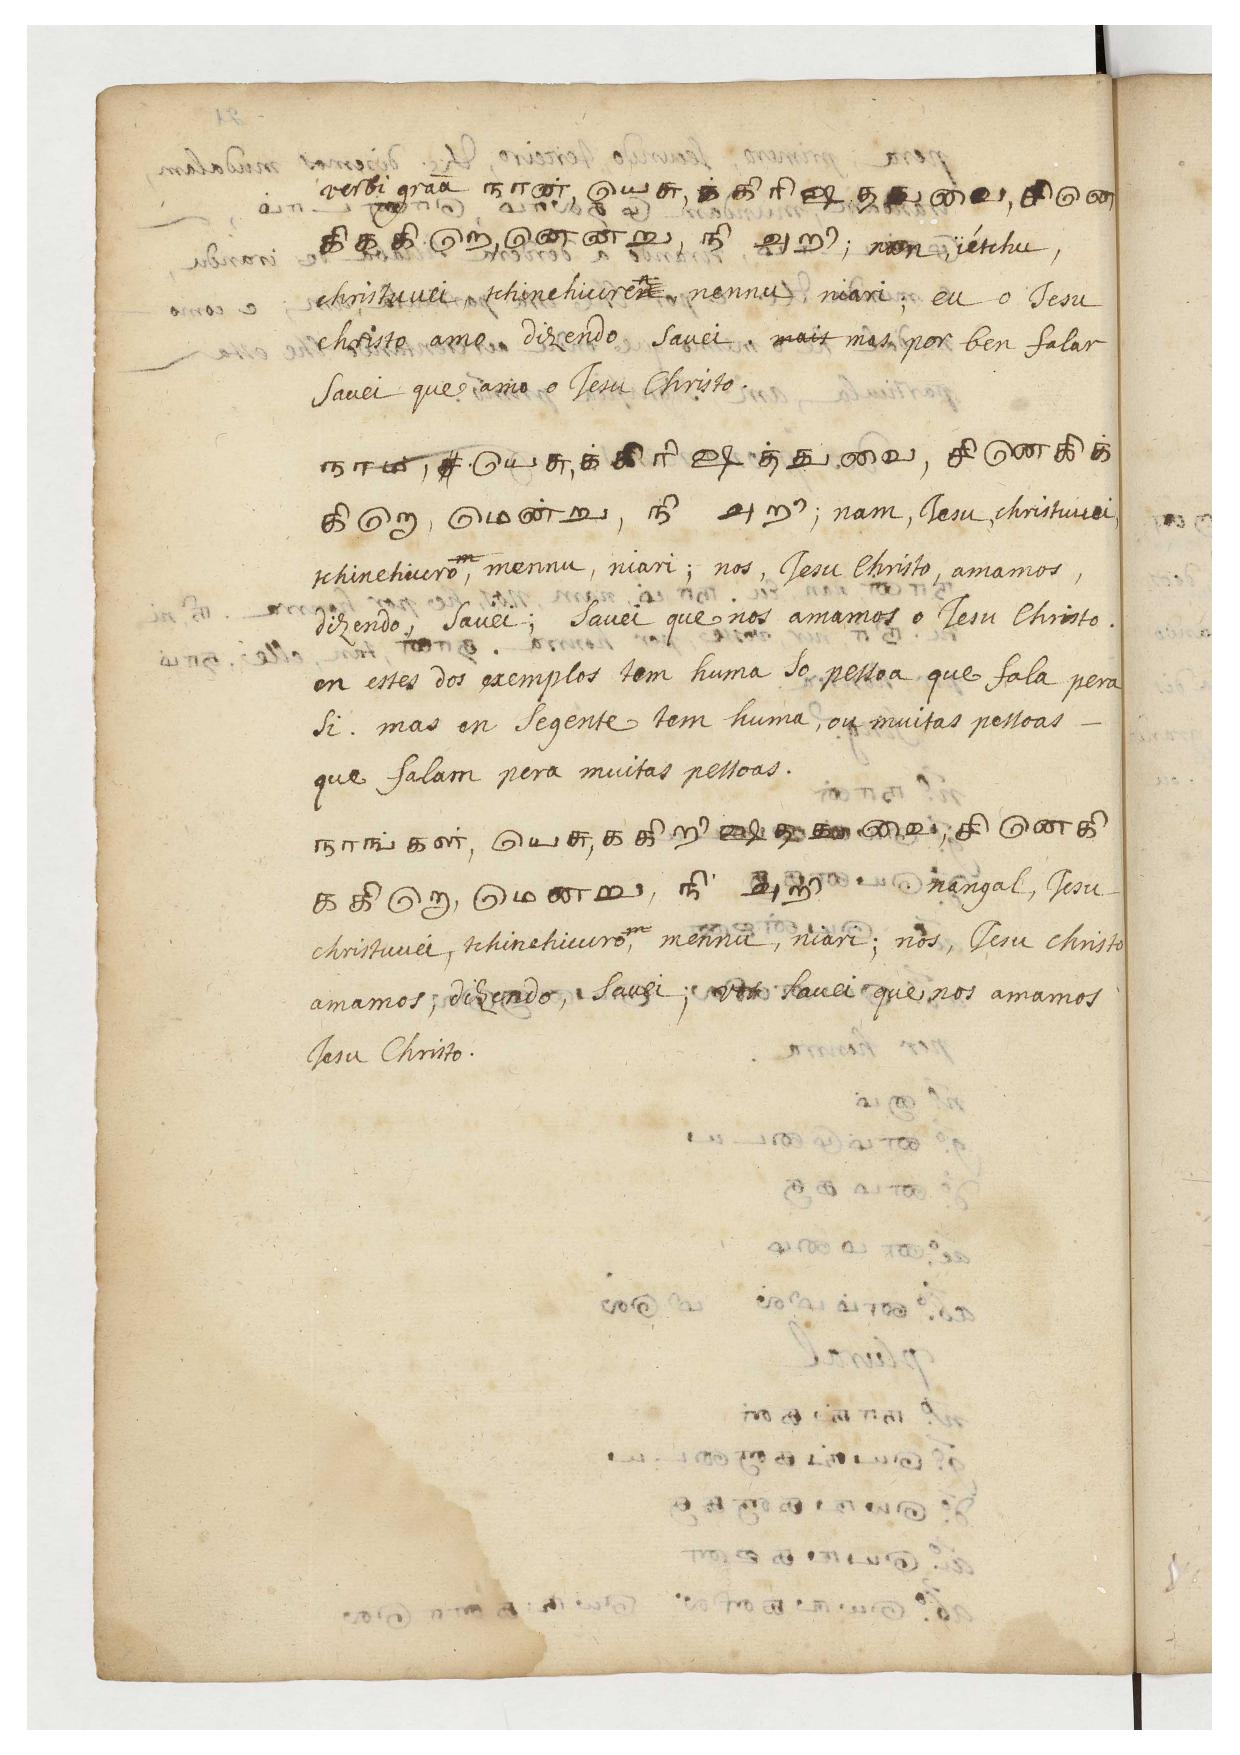 verbi graã நான், யெசு, க்கிரிஷத்துவை, சினெ
கிககிறெ,னெனறு, நி அறி; nan, iétchu,
christuuei, tchinehicuren, nennu niari; eu o Jesu
christo amo dizendo savei. mais mas por ben falar
savei que amo o Jesu Christo.
நாம, யெசு,க்கிரிஷ்த்துவை, சினெகிக்
கிறெ, மென்று, நி அறி; nam, Jesu, christuuei,
tchinehicurom, mennu, niari; nos, Jesu Christo, amamos,
dizendo, savei; savei que nos amamos o Jesu Christo.
en estes dos exemplos tem huma so pessoa que fala pera
si. mas en segente tem huma, ou muitas pessoas —
que falam pera muitas pessoas.
நாங்கள், யெசு,ககிறிஷ்தத வை, சினெகி
ககிறெ, மெனறு, நி அறி nangal, Jesu
christuuei, tchinehicurom, mennu, niari; nos, Jesu christo
amamos, dizendo, savei; vos savei que nos amamos
Jesu Christo.